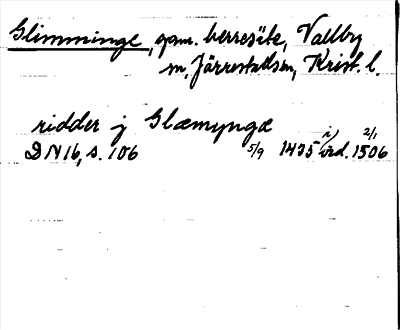 Glimminge, gam. herresäte, Vallby
sn, Järrestads hd, Krist. l.
ridder j Glæmyngæ
DN 16, s. 106 5/9 1435 i vid. 2/1 1506